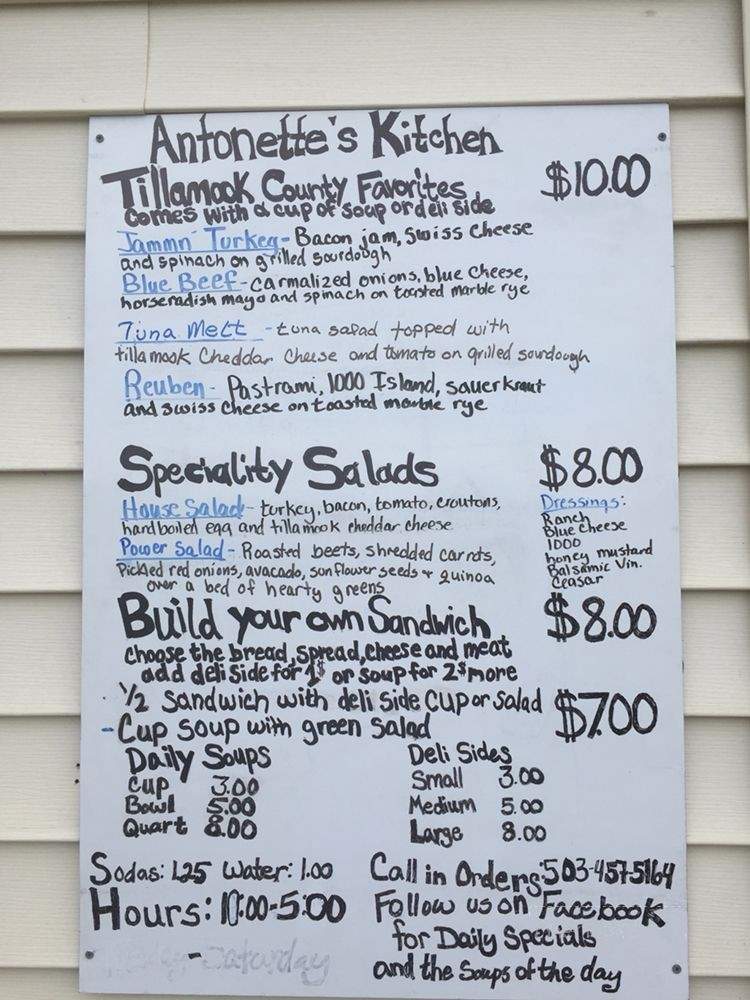 Antonette's Kitchen
Tillamook County Favorites $10.00
Comes with a cup of soup or deli side
Jammn' Turkey- Bacon jam, Swiss Cheese
and spinach on grilled Sourdough
Blue Beef-carmalized onions, blue cheese,
horseradish mayo and spinach on toasted marble rye
Tuna Melt - tuna salad topped with
tillamook Cheddar Cheese and tomato on grilled sourdough
Reuben- Pastrami, 1000 Island, sauerkraut
and swiss cheese on toasted marble rye
Speciality Salads $8.00
House Salad- turkey, bacon, tomato, croutons,
hardboiled egg and tillamook cheddar cheese
Power Salad- Roasted beets, shredded carrots,
Pickled red onions, avacado, sunflower seeds + quinoa
over a bed of hearty greens
Dressings:
Ranch
Blue Cheese
1000
honey mustard
Balsamic Vin.
Ceasar
Build your own Sandwich $8.00
choose the bread, spread, cheese and meat
add deli side for 1$ or soup for 2$ more
1/2 Sandwich with deli side cup or salad $7.00
-Cup soup with green salad
Daily Soups
Cup 3.00
Bowl 5.00
Quart 8.00
Deli Sides
Small 3.00
Medium 5.00
Large 8.00
Sodas: 1.25 Water: 1.00
Hours: 10:00-5:00
- Saturday
Call in Orders: 503-457-5164
Follow us on Facebook
for Daily Specials
and the Soups of the day